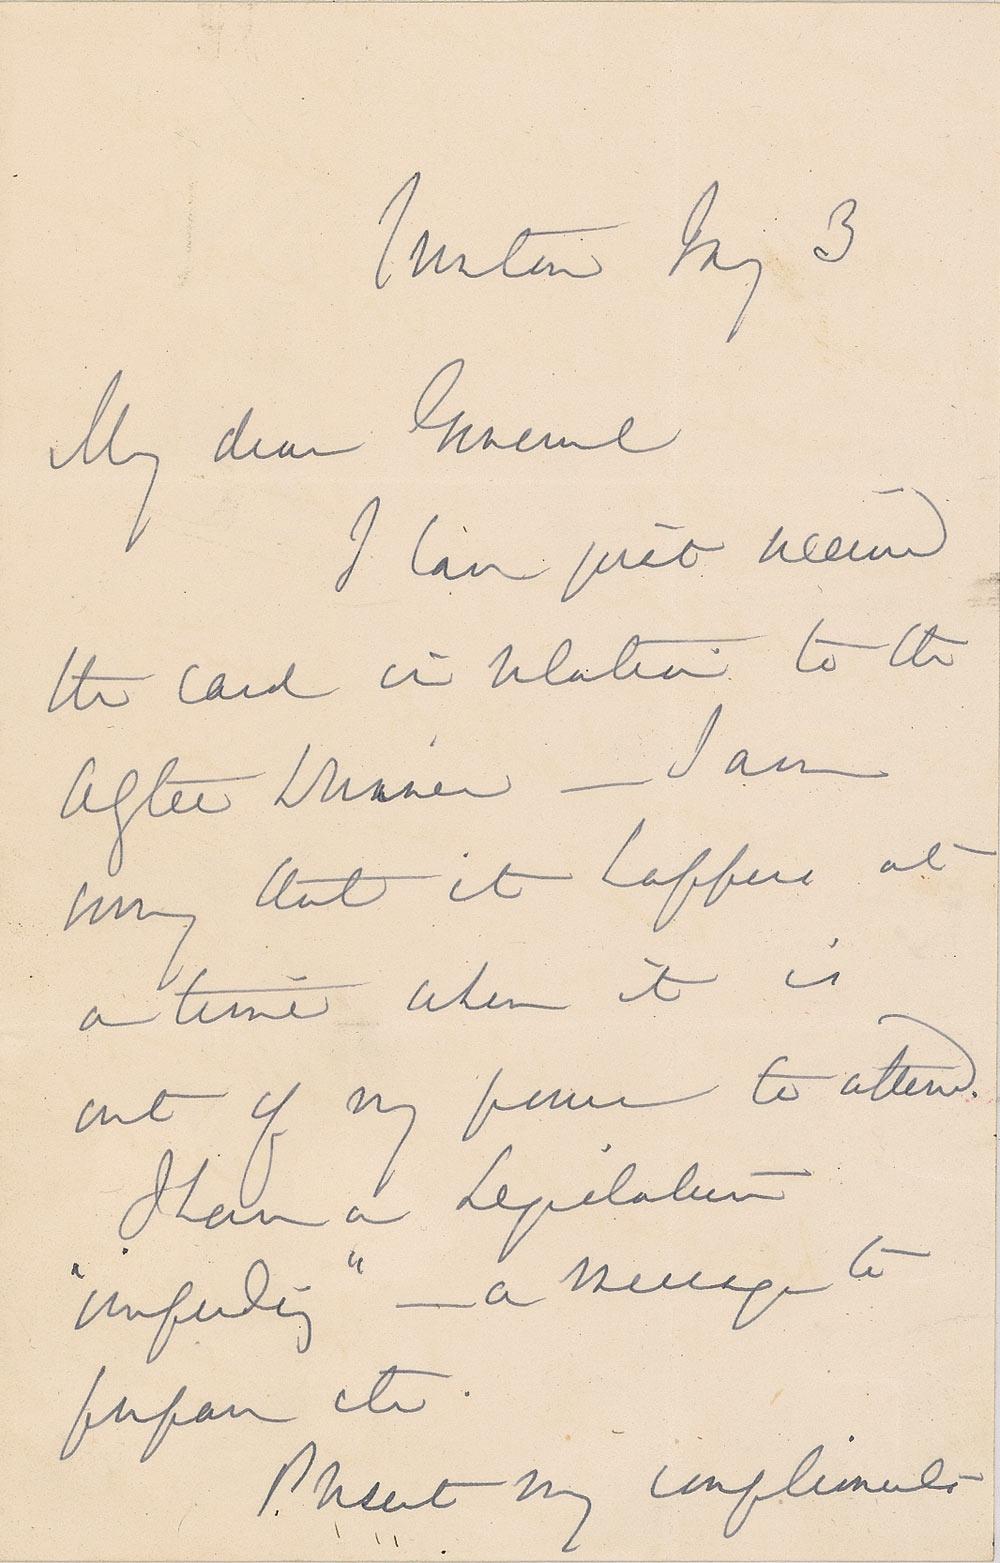 Trenton Jany 3
My dear General
I have just received
the card in relation to the
Aztec Dinner — I am
sorry that it happens at
a time when it is
out of my power to attend.
I have a Legislature
"impending" — a message to
prepare etc.
Present my compliments